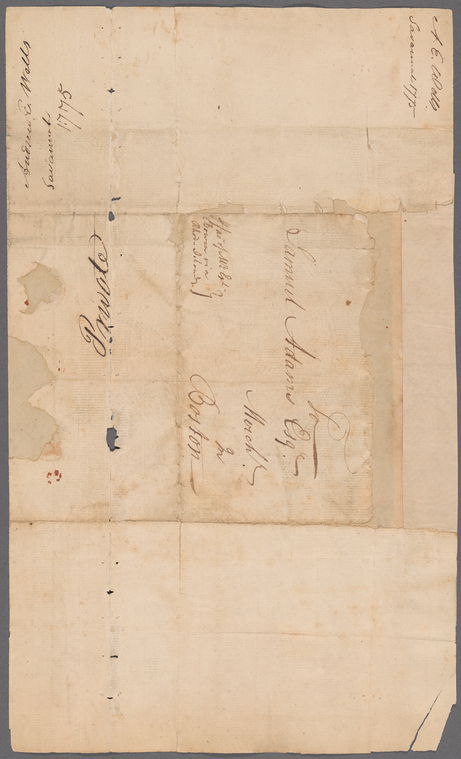 A. E. Wells
Savannah 1775
Andrew E. Wells
Savannah
1775
Private
To
Samuel Adams Esqr.
Mercht.
In
Boston